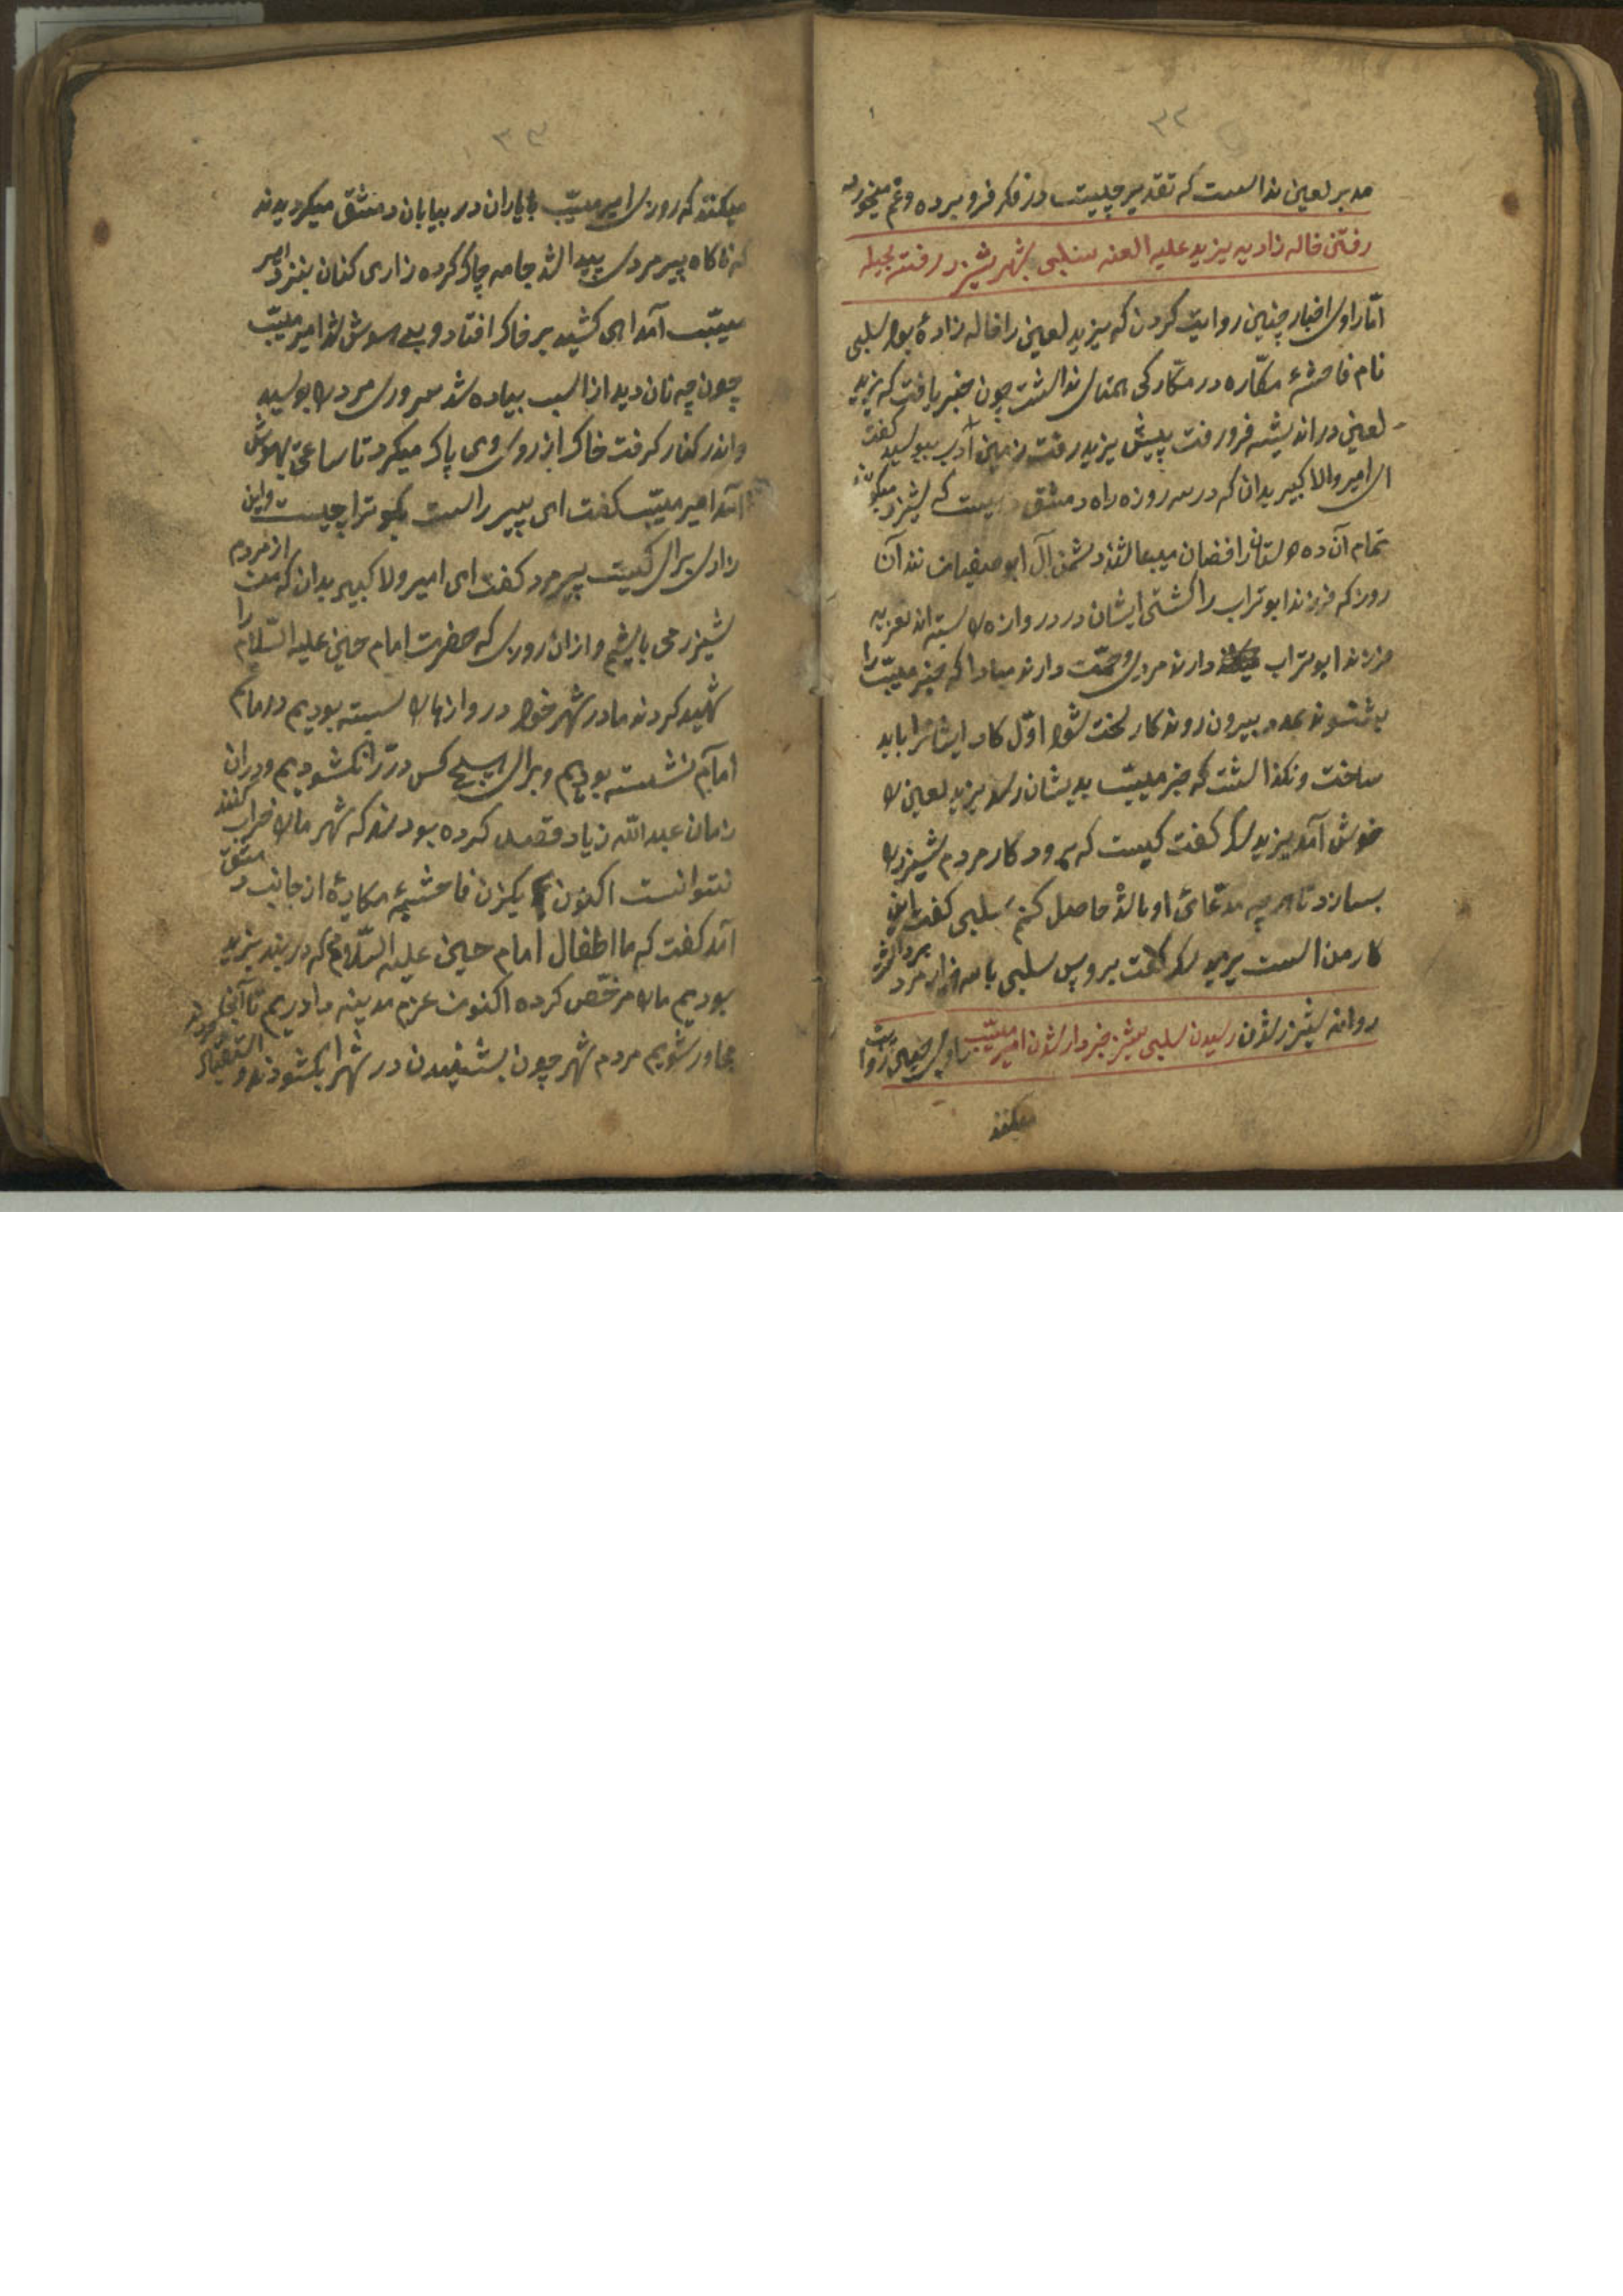 ۳۲
مدبر لعین نداست که تقدیر چیست در فکر فرو برده و غم میخورد
رفتن خاله زادیه یزید علیه العنه سلبی بشهر شیزر رفتنه بحیله
امّا راوی اخبار چنین روایت کردن که یزید لعین را خاله زادهٔ بود سلبی
نام فاحشهٔ مکّاره در مکّارکی همتای نداشت چون خبر یافت که یزید
لعین در اندیشه فرو رفت پیش یزید رفت زمین آدب ببوسید گفت
ای امیر والا کبیر بدان که در سه روزه راه دمشق دیست که شیزر میکویند
تمام آن ده دوستان رافضان میباشند دشمن آل ابو صفیان ند آن
روز که فرزند ابو تراب را کشتی ایشان در دروازه را بسته اند تعزیه
فرزند ابو تراب دارند مردی و حمیّت دارند مبادا که خبر میّب را
بشنوند همه بیرون روند کار سخت شود اوّل کار ایشانرا باید
ساخت و نکذاشت که خبر میّب بدیشان رسد یزید لعین را
خوش آمد یزید سک گفت کیست که برود کار مردم شیزر را
بسازد تا هر چه مدّعائ او باشد حاصل کنم سلبی گفت این
کار من است یزید سک گفت برو پس سلبی با سه هزار مرد برداشت
روانه شیزر شدن رسیدن سلبی بشیزر خبردار شدن امیر میّب راوی چنین روایت
میکنند
۳۳
میکنند که روزی امیر میّب با یاران در بیابان دمشق میکردیدند
که ناکاه پیر مردی پیدا شد جامه چاک کرده زاری کنان بنزد امیر
میّب آمد اهی کشید بر خاک افتاد و بی هوش شد امیر میّب
چون چه نان دید از اسب بیاده شد سر و روی مرد را بوسید
و اندر کنار کرفت خاک از روی وی پاک میکرد تا ساعتی بهوش
آمد امیر میّب گفت ای پیر راست بکو ترا چیست و این
زاری برای کیست پیر مرد گفت ای امیر ولا کبیر بدان که من از مردم
شیزر می باشیم و ازان روزی که حضرت امام حسین علیه السّلام را
شهید کردند ما در شهر خود دروازهارا بسته بودیم در ماتم
امام نشسته بودیم و برای هیچ کس در را نکشودیم و دران
زمان عبد اللّه زیاد قصد کرده بودند که شهر مارا خراب کنند
نتوانست اکنون یکزن فاحشهٔ مکارهٔ از جانب دمشق
آمد گفت که ما اطفال امام حسین علیه السّلامم که در بند یزید
بودیم مارا مرخّص کرده اکنون عزم مدینه داریم تا آنجا
مجاور شویم مردم شهر چون بشنیدن در شهرا بکشودند و استقبال کردند